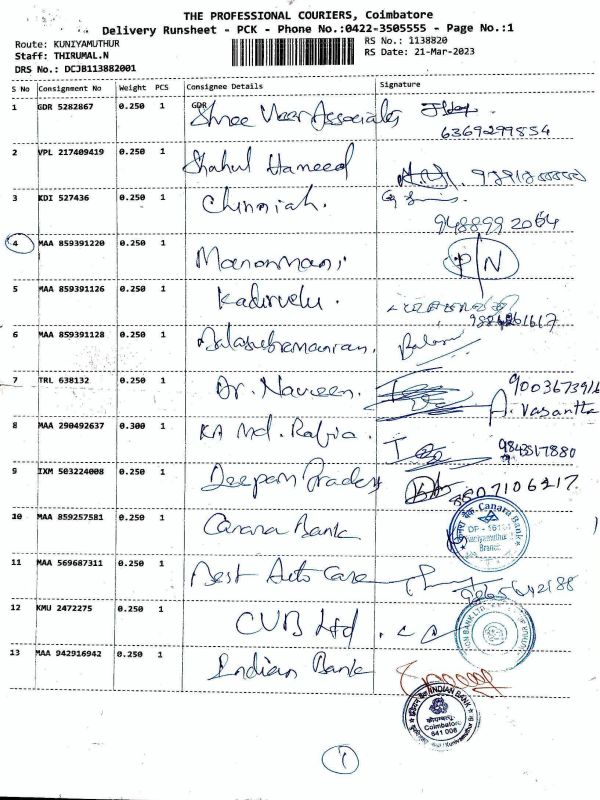 THE PROFESSIONAL COURIERS, Coimbatore
Delivery Runsheet - PCK - Phone No.:0422-3505555 - Page No.:1
Route: KUNIYAMUTHUR RS No.: 1138820
Staff: THIRUMAL.N RS Date: 21-Mar-2023
DRS No.: DCJB113882001
S No Consignment No Weight PCS Consignee Details Signature
1 GDR 5282867 0.250 1 GDR Shree Veer Associates
6369299854
2 VPL 217409419 0.250 1 Shahul Hameed
3 KDI 527436 0.250 1 Chinniah.
9488992064
4 MAA 859391220 0.250 1 Manonmani P/N
5 MAA 859391126 0.250 1 Kadirvelu.
6 MAA 859391128 0.250 1 Balasubramanian. Balan
7 TRL 638132 0.250 1 Dr. Naveen. 9003673916
A. Vasantha
8 MAA 290492637 0.300 1 KA Md. Rafia. 9843517880
9 IXM 503224008 0.250 1 Deepam Traders 8807106217
10 MAA 859257581 0.250 1 Canara Bank
Canara Bank
Kuniyamuthur
Branch
11 MAA 569687311 0.250 1 Best Auto Care
12 KMU 2472275 0.250 1 CUB Ltd.
13 MAA 942916942 0.250 1 Indian Bank
INDIAN BANK
Coimbatore
641 008
Kuniyamuthur
1